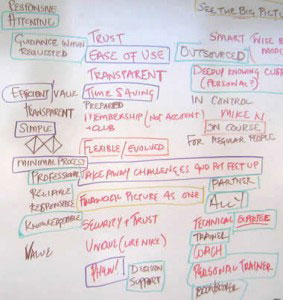 RESPONSIVE
ATTENTIVE
GUIDANCE WHEN
REQUESTED
EFFICIENT/VALUE
TRANSPARENT
SIMPLE
MINIMAL PROCESS
PROFESSIONAL
RELIABLE
RESPONSIBLE
KNOWLEDGEABLE
VALUE
TRUST
EASE OF USE
TRANSPARENT
TIME SAVING
PREPARED
MEMBERSHIP (NOT ACCOUNT)
+CLUB
FLEXIBLE/EVOLVED
TAKE AWAY CHALLENGES
FINANCIAL PICTURE AS ONE
SECURITY + TRUST
UNIQUE (LIKE NIKE)
DECISION
SUPPORT
SEE THE BIG PICTU
SMART
WISE B
OUTSOURCED
DEEPLY KNOWING CUST
(PERSONAL?)
IN CONTROL
MIKE N
ON COURSE
FOR REGULAR PEOPLE
PARTNER
ALLY
TECHNICAL EXPERTISE
TRAINER
COACH
PERSONAL TRAINER